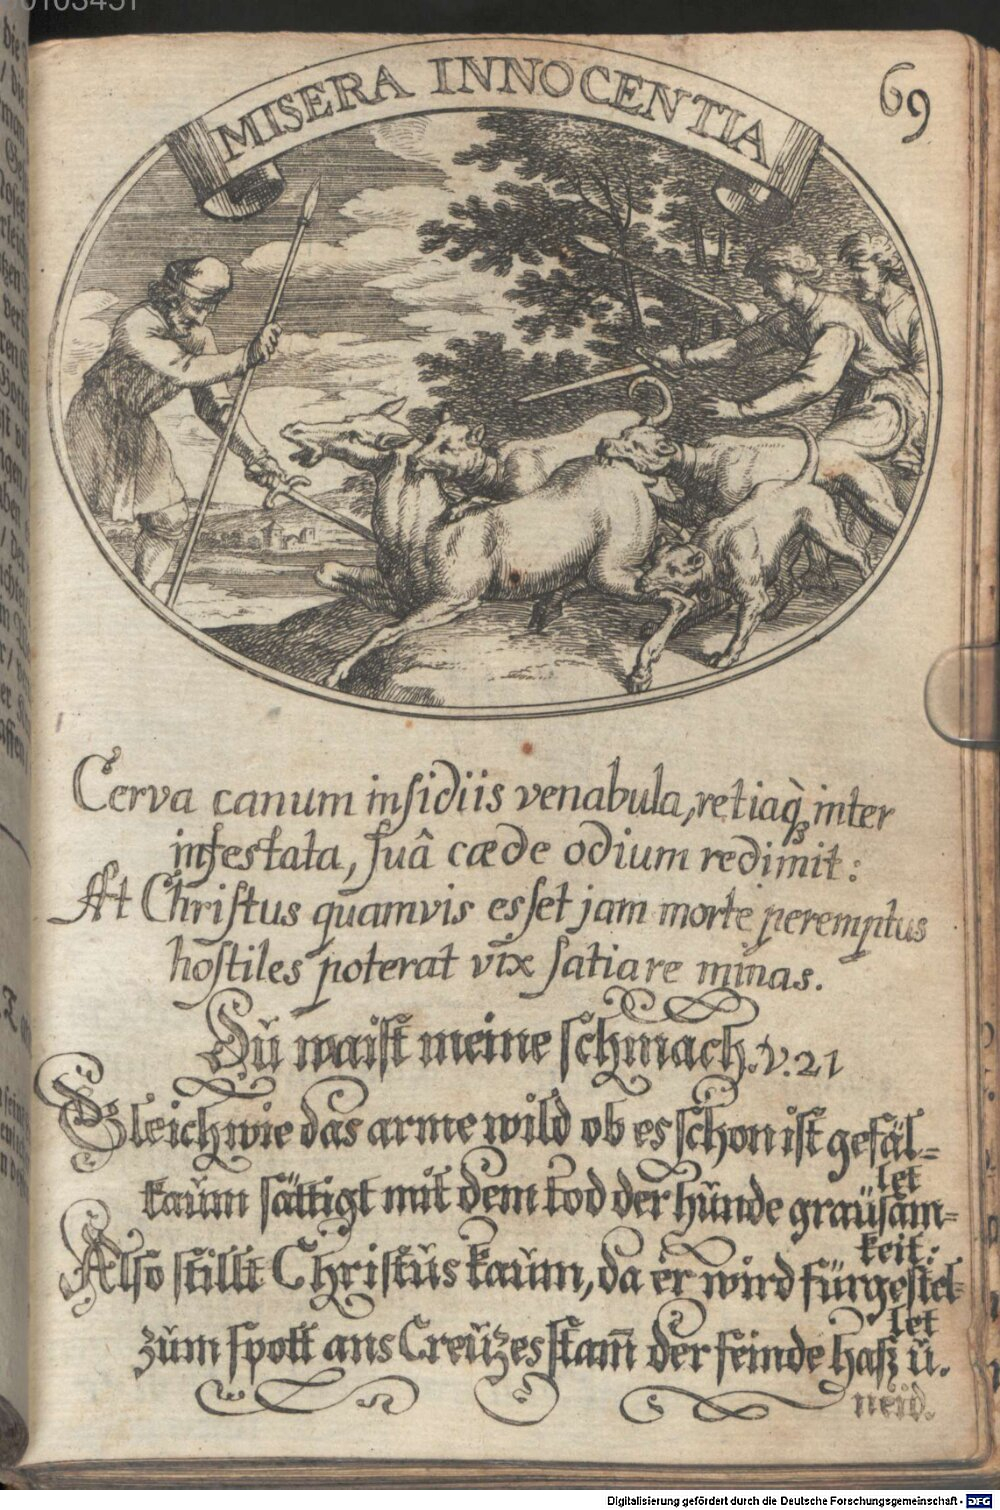 69
MISERA INNOCENTIA
Cerva canum insidiis venabula, retiaq; inter
infestata, suâ cæde odium redimit:
Ast Christus quamvis esset jam morte peremptus
hostiles poterat vix satiare minas.
Dŭ waist meine schmach. v. 21
Gleich wie das arme wild ob es schon ist gefäl-
let
kaŭm sättigt mit dem tod der hŭnde graŭsam-
keit:
Also stillt Christŭs kaŭm, da er wird fürgestel-
let
zŭm spott ans Creŭtzes stam̅ der feinde hasz ŭ.
neid.
Digitalisierung gefördert durch die Deutsche Forschungsgemeinschaft - DFG